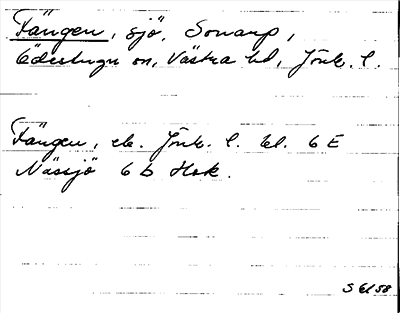 Fängen, sjö, Sonarp,
Ödestugu sn, Västra hd, Jönk. l.
Fängen, ek. Jönk. l. bl. 6 E
Nässjö 6 b Hok.
S 61 58